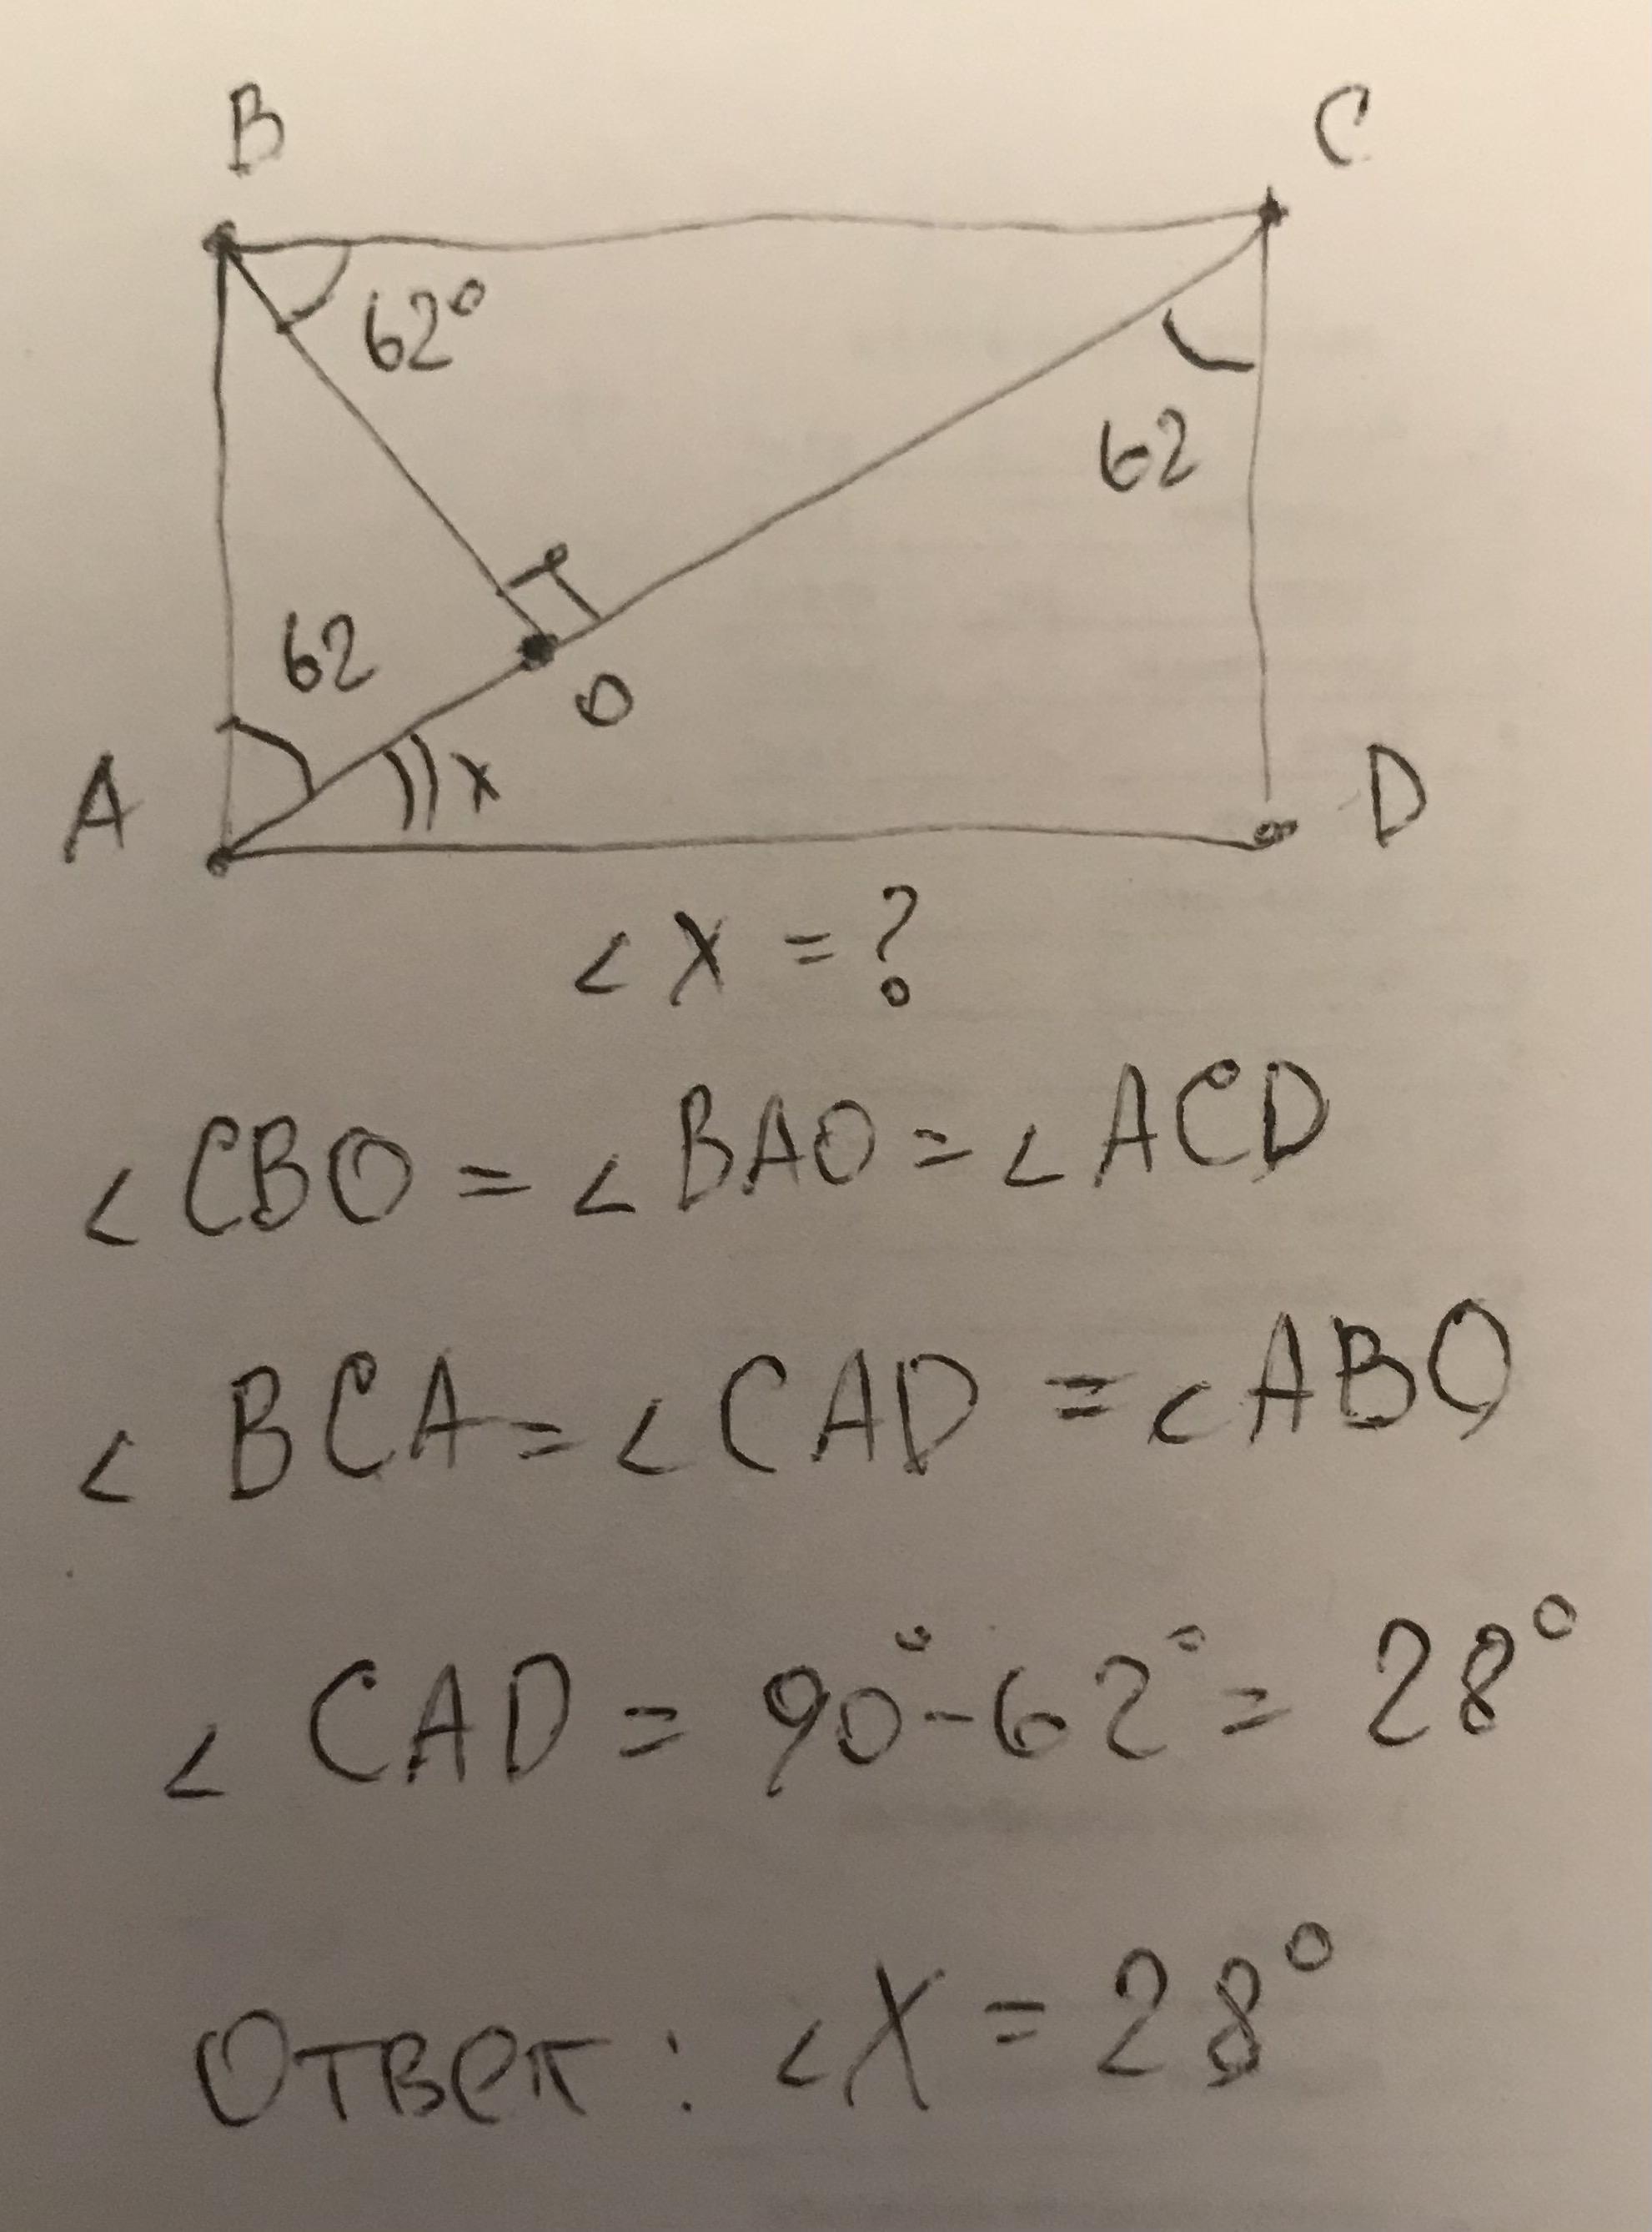 B C
62°
62
62
O
A x D
∠X = ?
∠CBO = ∠BAO = ∠ACD
∠BCA = ∠CAD = ∠ABO
∠CAD = 90° - 62° = 28°
Ответ: ∠X = 28°